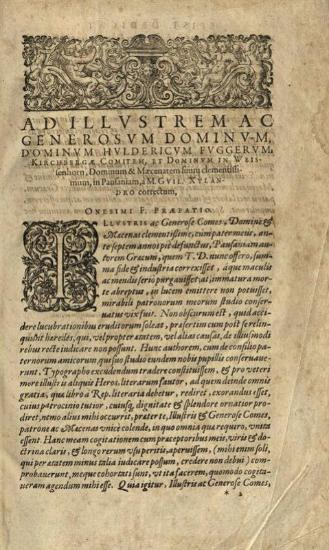 AD ILLVSTREM AC
GENEROSVM DOMINVM,
DOMINVM HVLDERICVM FVGGERVM,
KIRCHBERGÆ COMITEM, ET DOMINVM IN WEIS-
senhorn, Dominum & Mæcenatem suum clementissi-
mum, in Pausaniam, à M. GVIL. XYLAN-
DRO correctum,
ONESIMI F. PRÆFATIO.
ILLVSTRIS ac Generose Comes, Domine &
Mæcenas clementissime, cum pater meus, an-
te septem annos piè defunctus, Pausaniam au-
torem Græcum, quem T. D. nunc offero, sum-
ma fide & industria correxisset, a quæ maculis
ac mendis serio purgauisset: at, immatura mor-
te abreptus, in lucem emittere non potuisset,
mirabili patronorum meorum studio conser-
uatus vix fuit. Non obscurum est, quid acci-
dere lucubrationibus eruditorum soleat, præsertim cum post se relin-
quistit heredes, qui, vel propter ætatem, vel alias causas, de illius modi
rebus rectè iudicare non possunt. Hunc authorem, cum de consilio pa-
tronorum amicorum, qui suo studio eundem nobis pupillis conseruaue-
runt: Typographo excudendum tradere constituissem, & pro veteri
more illustris aliquis Heros, literarum fautor, ad quem deinde omnis
gratia, quæ libro à Rep. literaria debetur, rediret, exorandus esset,
cuius patrocinio tutior, cuiusq; dignitate & splendore ornatior prodi-
ret, nemo alius mihi occurrit, præter te, Illustris & Generose Comes,
patrone ac Mæcenas vnicè colende, in quo omnia quæ requiro, vnita
essent. Hanc meam cogitationem cum præceptoribus meis, viris & do-
ctrina claris, & longo rerum vsu peritis, aperuissem, (mihi enim soli,
qui per ætatem minus talia iudicare possum, credere non debui) com-
probauerunt, meque cohortati sunt, vt ita facerem, quomodo cogita-
ueram agendum mihi esse. Quia igitur, Illustris ac Generose Comes,
* 2